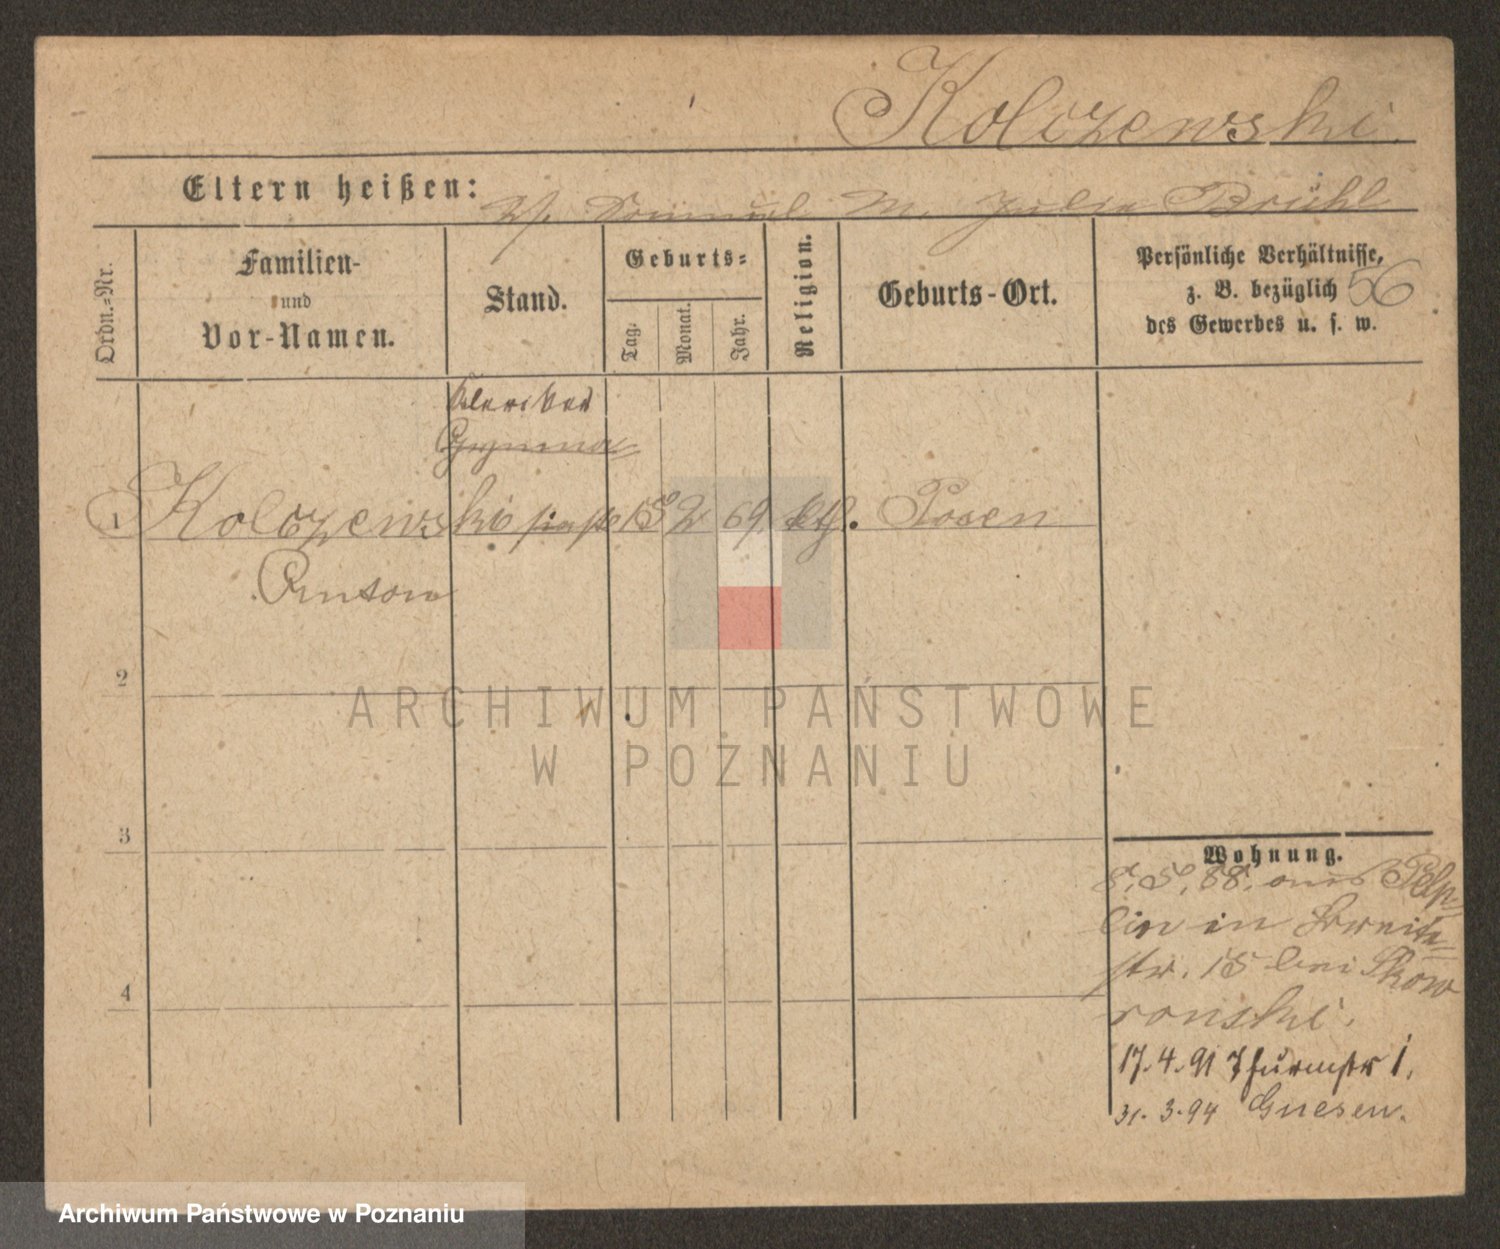 Kolczewski.
Eltern heißen: V. Samuel M. Julia Brühl
Ordn.=Nr.
Familien-
und
Vor-Namen.
Stand.
Geburts=
Tag.
Monat.
Jahr.
Religion.
Geburts-Ort.
Persönliche Verhältnisse,
z. B. bezüglich
des Gewerbes u. s. w.
56
Kleriker
Gymna=
1 Kolczewski siast 15 2 69. kth. Posen
Anton
2
3
4
Wohnung.
8.5.88. aus Pelp=
lin in Breite=
str. 15 bei Skow
ronski.
17.4.91 Thurmstr 1.
31.3.94 Gnesen.
ARCHIWUM PAŃSTWOWE
W POZNANIU
Archiwum Państwowe w Poznaniu